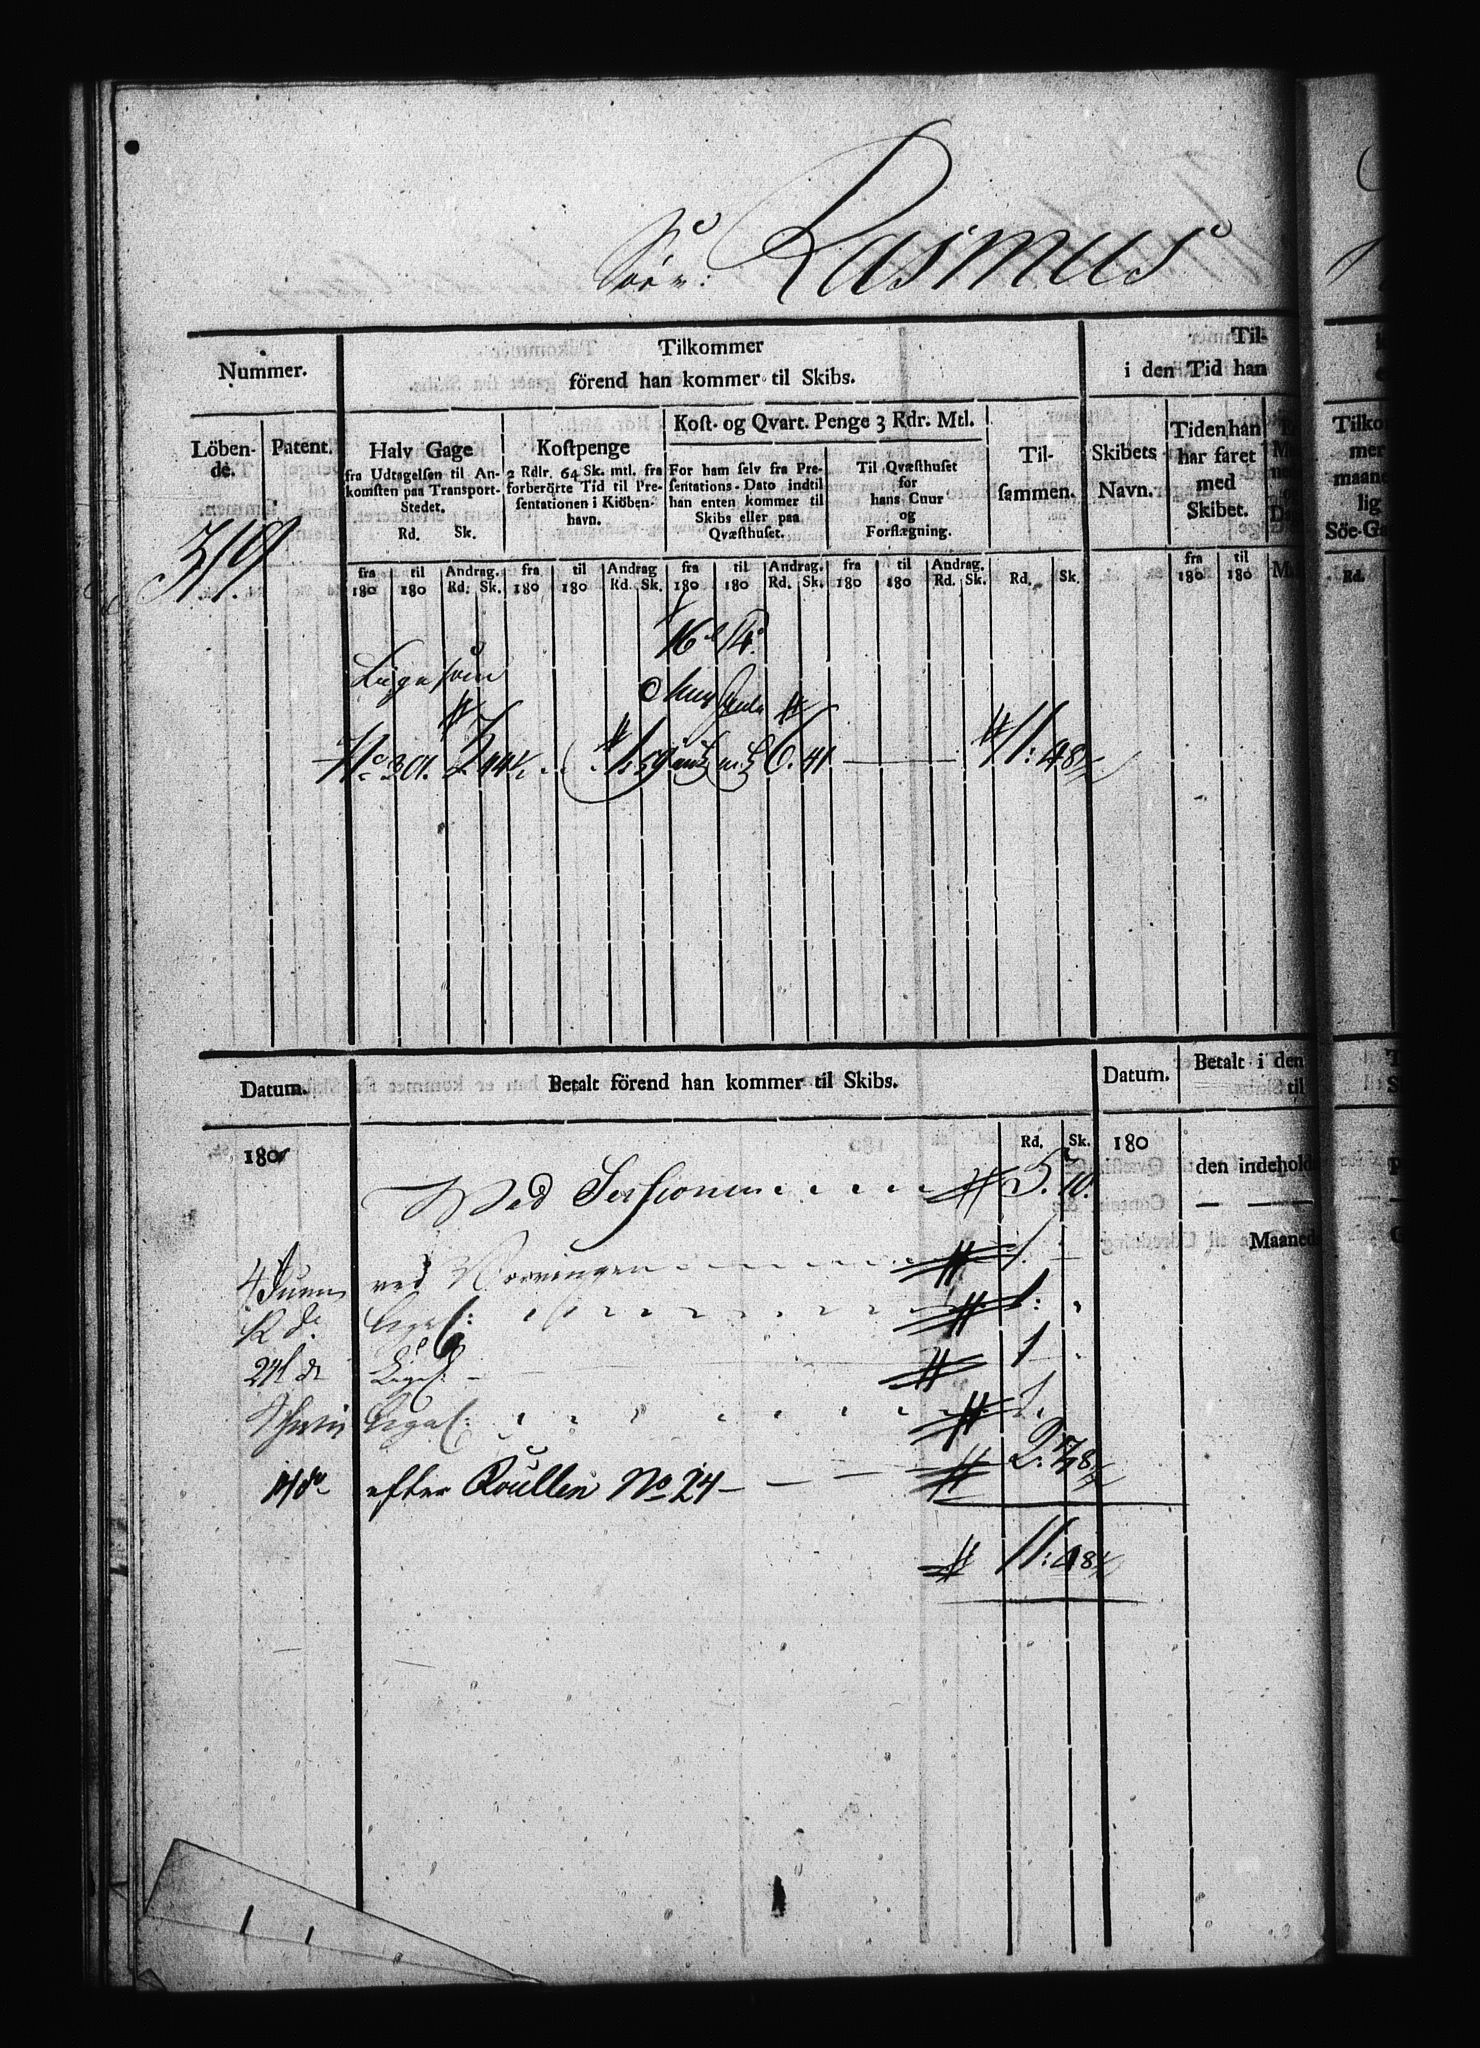 Rasmus
Nummer.
Tilkommer
förend han kommer til Skibs.
Til-
i den Tid han
Löben-
de.
Patent.
Halv Gage
fra Udtagelsen til An-
komsten paa Transport-
Stedet.
Rd. Sk.
Kostpenge
2 Rdlr. 64 Sk. mtl. fra
forberörte Tid til Pre-
sentationen i Kiöben-
havn.
Kost- og Qvart. Penge 3 Rdr. Mtl.
For ham selv fra Pre-
sentations-Dato indtil
han enten kommer til
Skibs eller paa
Qvæsthuset.
Til Qvæsthuset
for
hans Cuur
og
Forflægning.
Til-
sammen.
Skibets
Navn.
Tiden han
har faret
med
Skibet.
319
fra 180 til 180 Andrag. Rd. Sk. fra 180 til 180 Andrag Rd. Sk. fra 180 til 180 Andrag. Rd. Sk. fra 180 til 180 Andrag. Rd. Sk. Rd. Sk. fra 180 til 180
Lige som
No 301. 3. 44½ 1. 59 6. 41 11: 48½
Datum.
Betalt förend han kommer til Skibs.
Datum.
Betalt i den
til
180
Rd. Sk.
180
Ved Sessionen 5. 10.
den indehold
Maaned
4 Junii ved 1.
12 do Ligel: 1:
24 do Ligel: 1
Ligel: 1.
efter Roullen No 24 2. 38½
11: 48½
Tilkom-
mer
maaned-
lig
Söe-Ga
Rd.